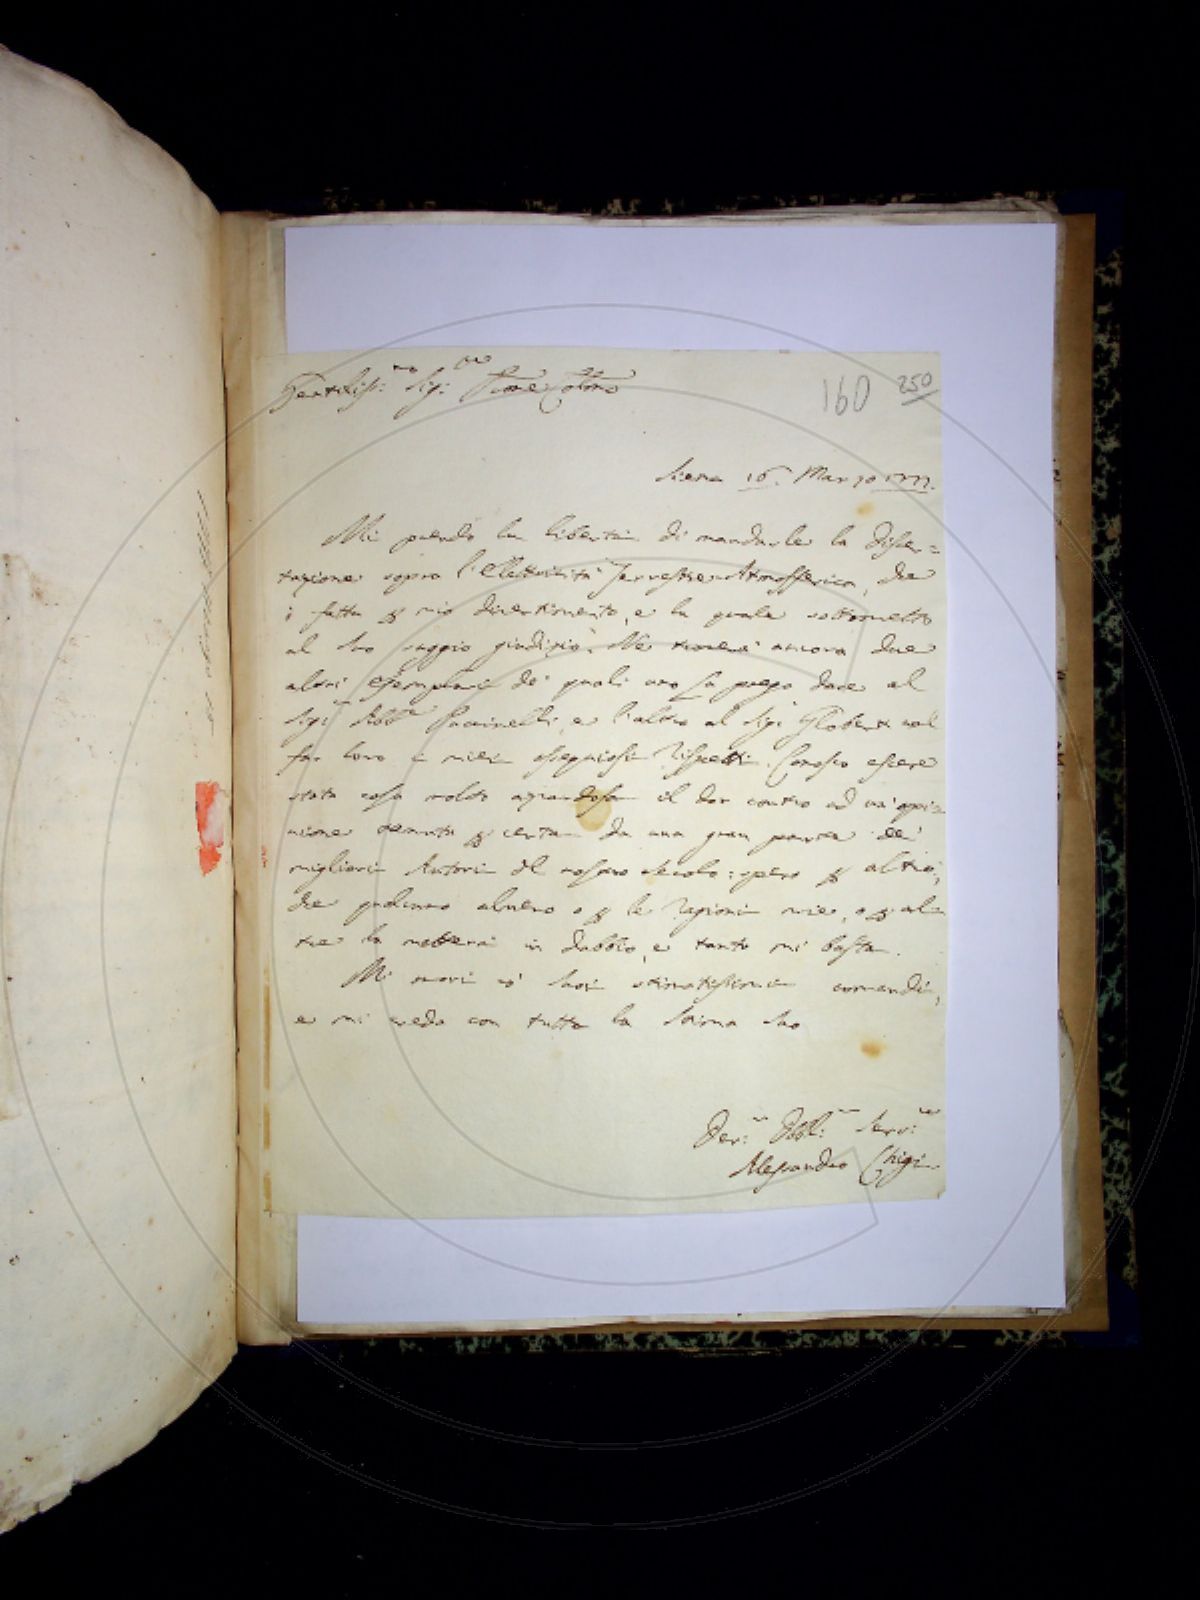 Gentiliss:mo Sig:r Prone Colmo
160 250
Siena 16. Marzo 1777.
Mi prendo la libertà di mandarle la Disser=
tazione sopra l'Elettricità Terrestre-Atmosferica, che
ò fatta per mio divertimento, e la quale sottometto
al suo saggio giudizio. Ne troverà ancora due
altri esemplari de' quali uno La prego dare al
Sig:r Dott:r Puccinelli, e l'altro al Sig:r col
far loro i miei ossequiosi rispetti. Conosco essere
stata cosa molto azzardosa il dar contro ad un'opi=
nione tenuta per certa da una gran parte dei
migliori Autori del nostro secolo: spero per altro,
che potranno almeno o per le ragioni mie, o per al=
tre la metterà in dubbio, e tanto mi basta.
Mi onori de' suoi stimatissimi comandi,
e mi creda con tutta la stima suo
Dev:mo Obbl:mo Serv:re
Alessandro Chigi